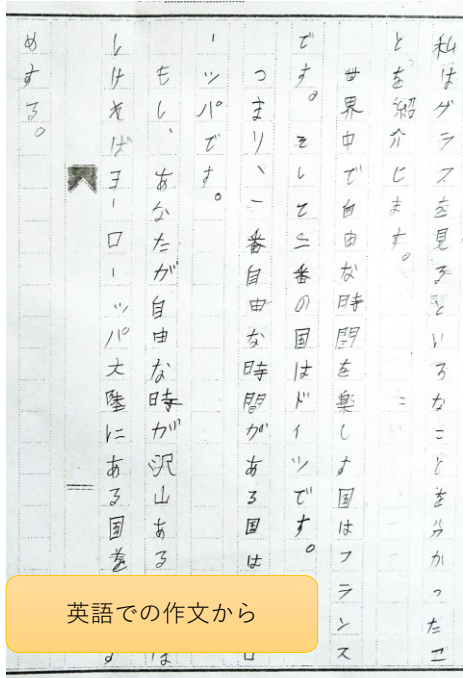 私はグラフを見るといろなことを分かったこ
とを紹介します。
世界中で自由な時間を楽しよ国はフランス
です。そして二番の国はドイツです。
つまり、一番自由な時間がある国はロ
ーッパです。
もし、あなたが自由な時が沢山あるは
しければヨーローッパ大陸にある国をす
めする。
英語での作文から